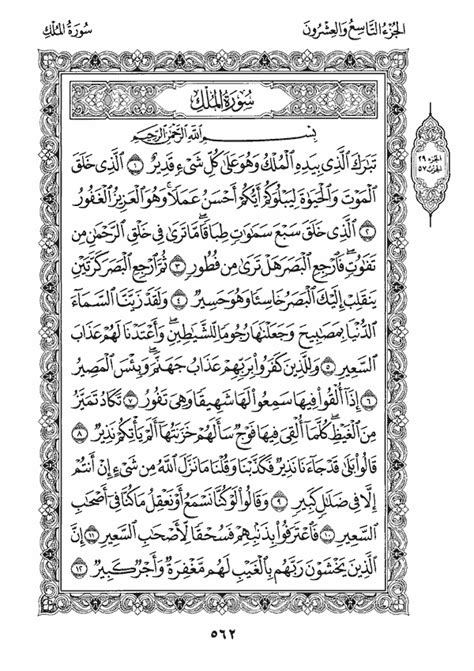 سُورَةُ المُلْكِ
الجُزْءُ التَّاسِعُ وَالعِشْرُونَ
سُورَةُ المُلْكِ
بِسْمِ اللَّهِ الرَّحْمَٰنِ الرَّحِيمِ
الجزء ٢٩
الحزب ٥٧
تَبَٰرَكَ ٱلَّذِي بِيَدِهِ ٱلْمُلْكُ وَهُوَ عَلَىٰ كُلِّ شَيْءٍ قَدِيرٌ ١ ٱلَّذِي خَلَقَ
ٱلْمَوْتَ وَٱلْحَيَوٰةَ لِيَبْلُوَكُمْ أَيُّكُمْ أَحْسَنُ عَمَلًا ۚ وَهُوَ ٱلْعَزِيزُ ٱلْغَفُورُ
٢ ٱلَّذِي خَلَقَ سَبْعَ سَمَٰوَٰتٍ طِبَاقًا ۖ مَّا تَرَىٰ فِي خَلْقِ ٱلرَّحْمَٰنِ مِن
تَفَٰوُتٍ ۖ فَٱرْجِعِ ٱلْبَصَرَ هَلْ تَرَىٰ مِن فُطُورٍ ٣ ثُمَّ ٱرْجِعِ ٱلْبَصَرَ كَرَّتَيْنِ
يَنقَلِبْ إِلَيْكَ ٱلْبَصَرُ خَاسِئًا وَهُوَ حَسِيرٌ ٤ وَلَقَدْ زَيَّنَّا ٱلسَّمَآءَ
ٱلدُّنْيَا بِمَصَٰبِيحَ وَجَعَلْنَٰهَا رُجُومًا لِّلشَّيَٰطِينِ ۖ وَأَعْتَدْنَا لَهُمْ عَذَابَ
ٱلسَّعِيرِ ٥ وَلِلَّذِينَ كَفَرُوا۟ بِرَبِّهِمْ عَذَابُ جَهَنَّمَ ۖ وَبِئْسَ ٱلْمَصِيرُ
٦ إِذَآ أُلْقُوا۟ فِيهَا سَمِعُوا۟ لَهَا شَهِيقًا وَهِيَ تَفُورُ ٧ تَكَادُ تَمَيَّزُ
مِنَ ٱلْغَيْظِ ۖ كُلَّمَآ أُلْقِيَ فِيهَا فَوْجٌ سَأَلَهُمْ خَزَنَتُهَآ أَلَمْ يَأْتِكُمْ نَذِيرٌ ٨
قَالُوا۟ بَلَىٰ قَدْ جَآءَنَا نَذِيرٌ فَكَذَّبْنَا وَقُلْنَا مَا نَزَّلَ ٱللَّهُ مِن شَيْءٍ إِنْ أَنتُمْ
إِلَّا فِي ضَلَٰلٍ كَبِيرٍ ٩ وَقَالُوا۟ لَوْ كُنَّا نَسْمَعُ أَوْ نَعْقِلُ مَا كُنَّا فِيٓ أَصْحَٰبِ
ٱلسَّعِيرِ ١٠ فَٱعْتَرَفُوا۟ بِذَنۢبِهِمْ فَسُحْقًا لِّأَصْحَٰبِ ٱلسَّعِيرِ ١١ إِنَّ
ٱلَّذِينَ يَخْشَوْنَ رَبَّهُم بِٱلْغَيْبِ لَهُم مَّغْفِرَةٌ وَأَجْرٌ كَبِيرٌ ١٢
٥٦٢